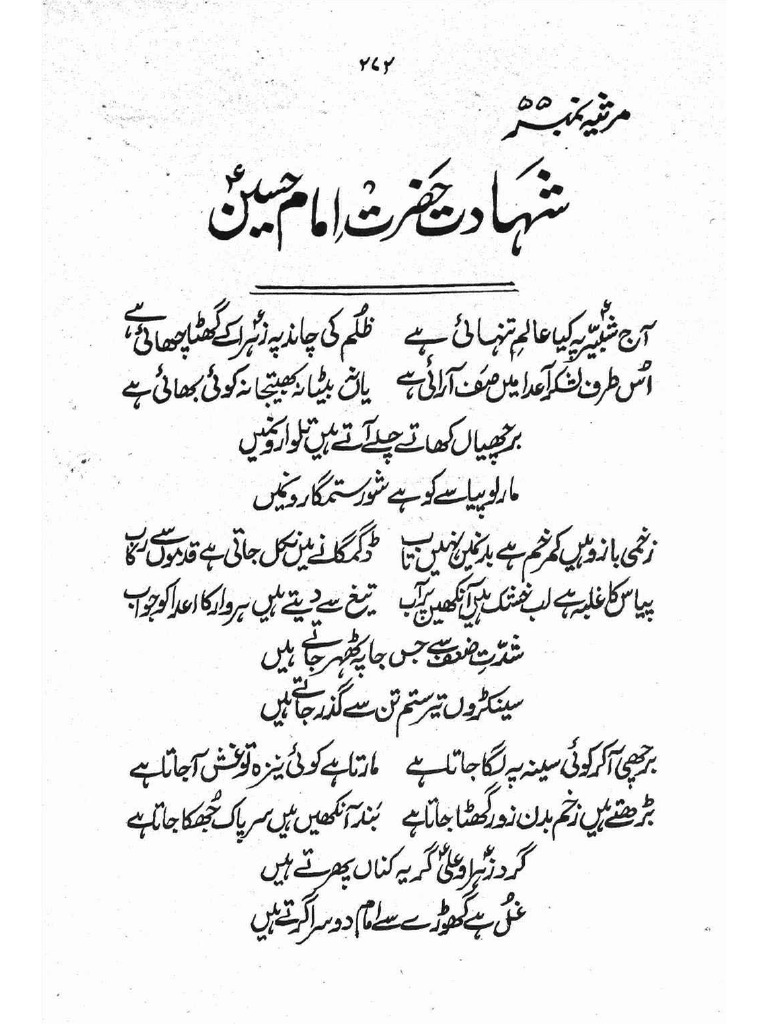 ۲۷۲
مرثیہ نمبر ۵۵
شہادت حضرت امام حسینؑ
آج شبیرؑ پہ کیا عالمِ تنہائی ہے ظلم کی چاند پہ زہراؑ کے گھٹا چھائی ہے
اُس طرف لشکر اعدا میں صف آرائی ہے یاں نہ بیٹا نہ بھتیجا نہ کوئی بھائی ہے
برچھیاں کھاتے چلے آتے ہیں تلواروں میں
مار لو پیاسے کو ہے شور ستمگاروں میں
زخمی بازو ہیں کمر خم ہے بدن میں نہیں تاب ڈگمگاتے ہیں نکل جاتی ہے قدموں سے رکاب
پیاس کا غلبہ ہے لب خشک ہیں آنکھیں پُر آب تیغ سے دیتے ہیں ہر وار کا اعدا کو جواب
شدّتِ ضعف سے جس جا پہ ٹھہر جاتے ہیں
سینکڑوں تیر ستم تن سے گذر جاتے ہیں
برچھی آکر کوئی سینہ پہ لگا جاتا ہے مارتا ہے کوئی نیزہ تو غش آجاتا ہے
بڑھتے ہیں زخم بدن زور گھٹا جاتا ہے بُند آنکھیں ہیں سر پاک جُھکا جاتا ہے
گرد زہراؑ و علیؑ گریہ کناں پھرتے ہیں
غُل ہے گھوڑے سے امام دوسرا گرتے ہیں